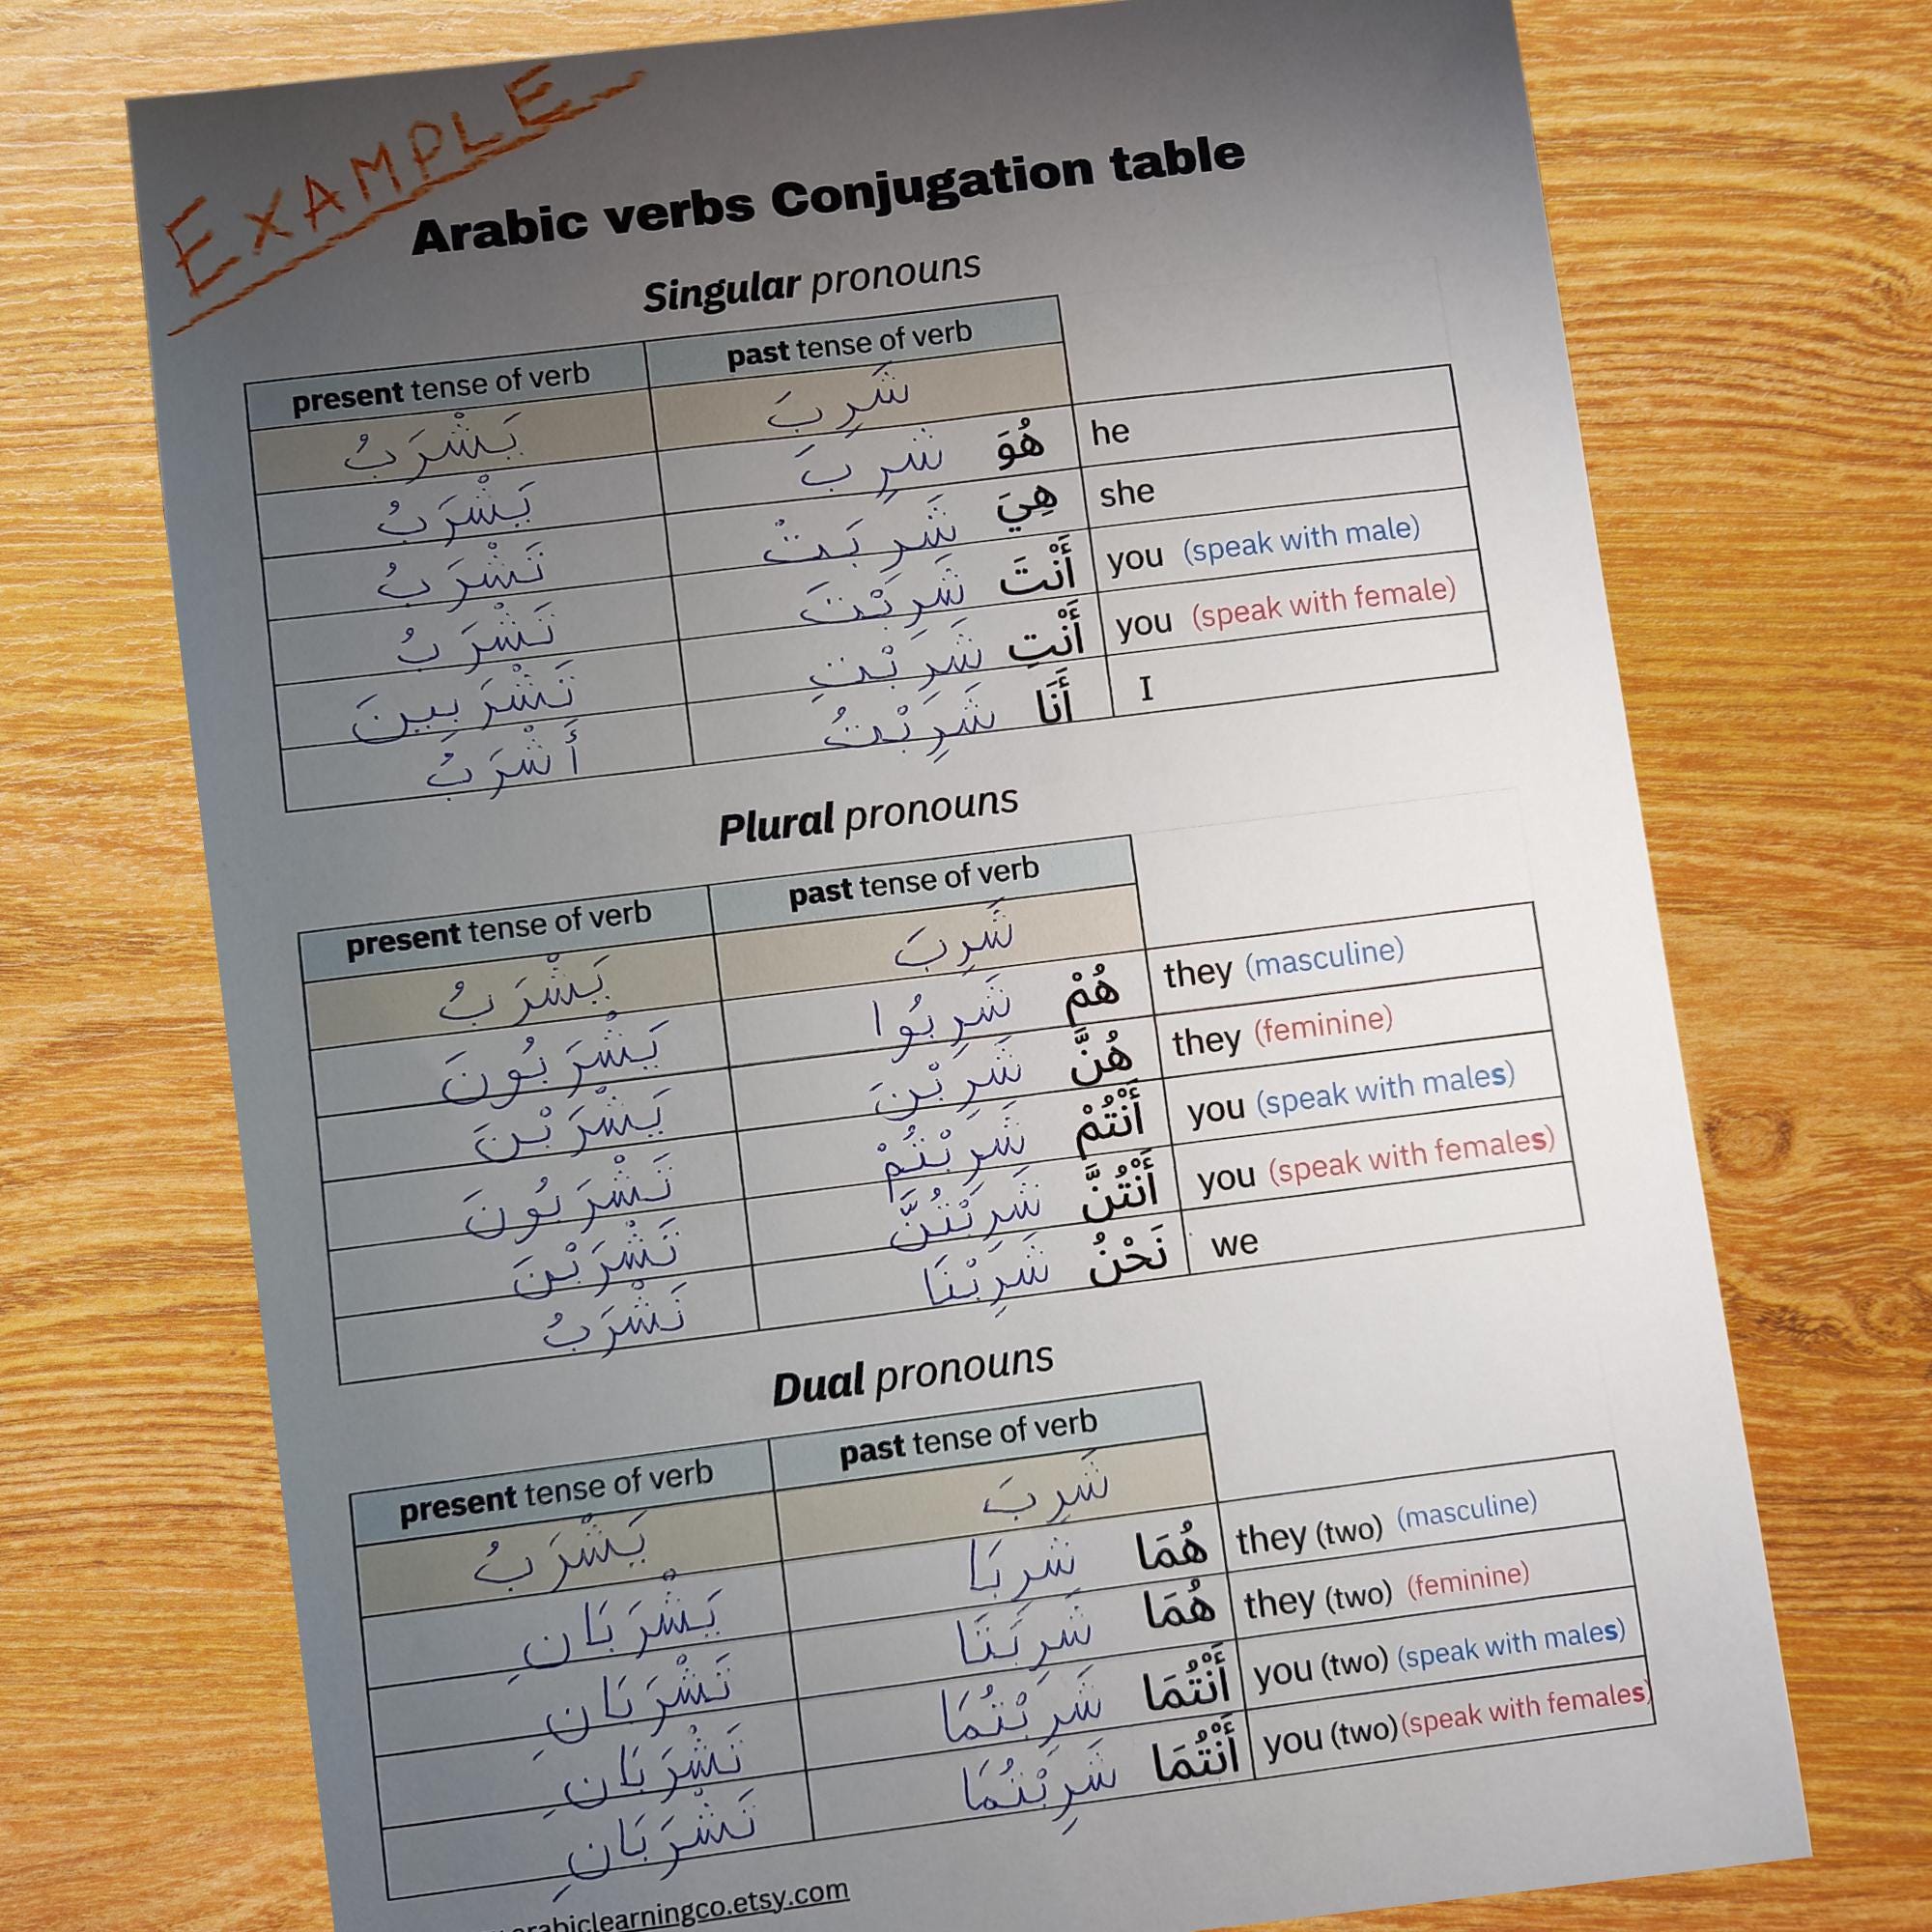 EXAMPLE
Arabic verbs Conjugation table
Singular pronouns
present tense of verb past tense of verb
يَشْرَبُ شَرِبَ
يَشْرَبُ هُوَ شَرِبَ he
تَشْرَبُ هِيَ شَرِبَتْ she
تَشْرَبُ أَنْتَ شَرِبْتَ you (speak with male)
تَشْرَبِينَ أَنْتِ شَرِبْتِ you (speak with female)
أَشْرَبُ أَنَا شَرِبْتُ I
Plural pronouns
present tense of verb past tense of verb
يَشْرَبُ شَرِبَ
يَشْرَبُونَ هُمْ شَرِبُوا they (masculine)
يَشْرَبْنَ هُنَّ شَرِبْنَ they (feminine)
تَشْرَبُونَ أَنْتُمْ شَرِبْتُمْ you (speak with males)
تَشْرَبْنَ أَنْتُنَّ شَرِبْتُنَّ you (speak with females)
نَشْرَبُ نَحْنُ شَرِبْنَا we
Dual pronouns
present tense of verb past tense of verb
يَشْرَبُ شَرِبَ
يَشْرَبَانِ هُمَا شَرِبَا they (two) (masculine)
تَشْرَبَانِ هُمَا شَرِبَتَا they (two) (feminine)
تَشْرَبَانِ أَنْتُمَا شَرِبْتُمَا you (two) (speak with males)
تَشْرَبَانِ أَنْتُمَا شَرِبْتُمَا you (two) (speak with females)
arabiclearningco.etsy.com